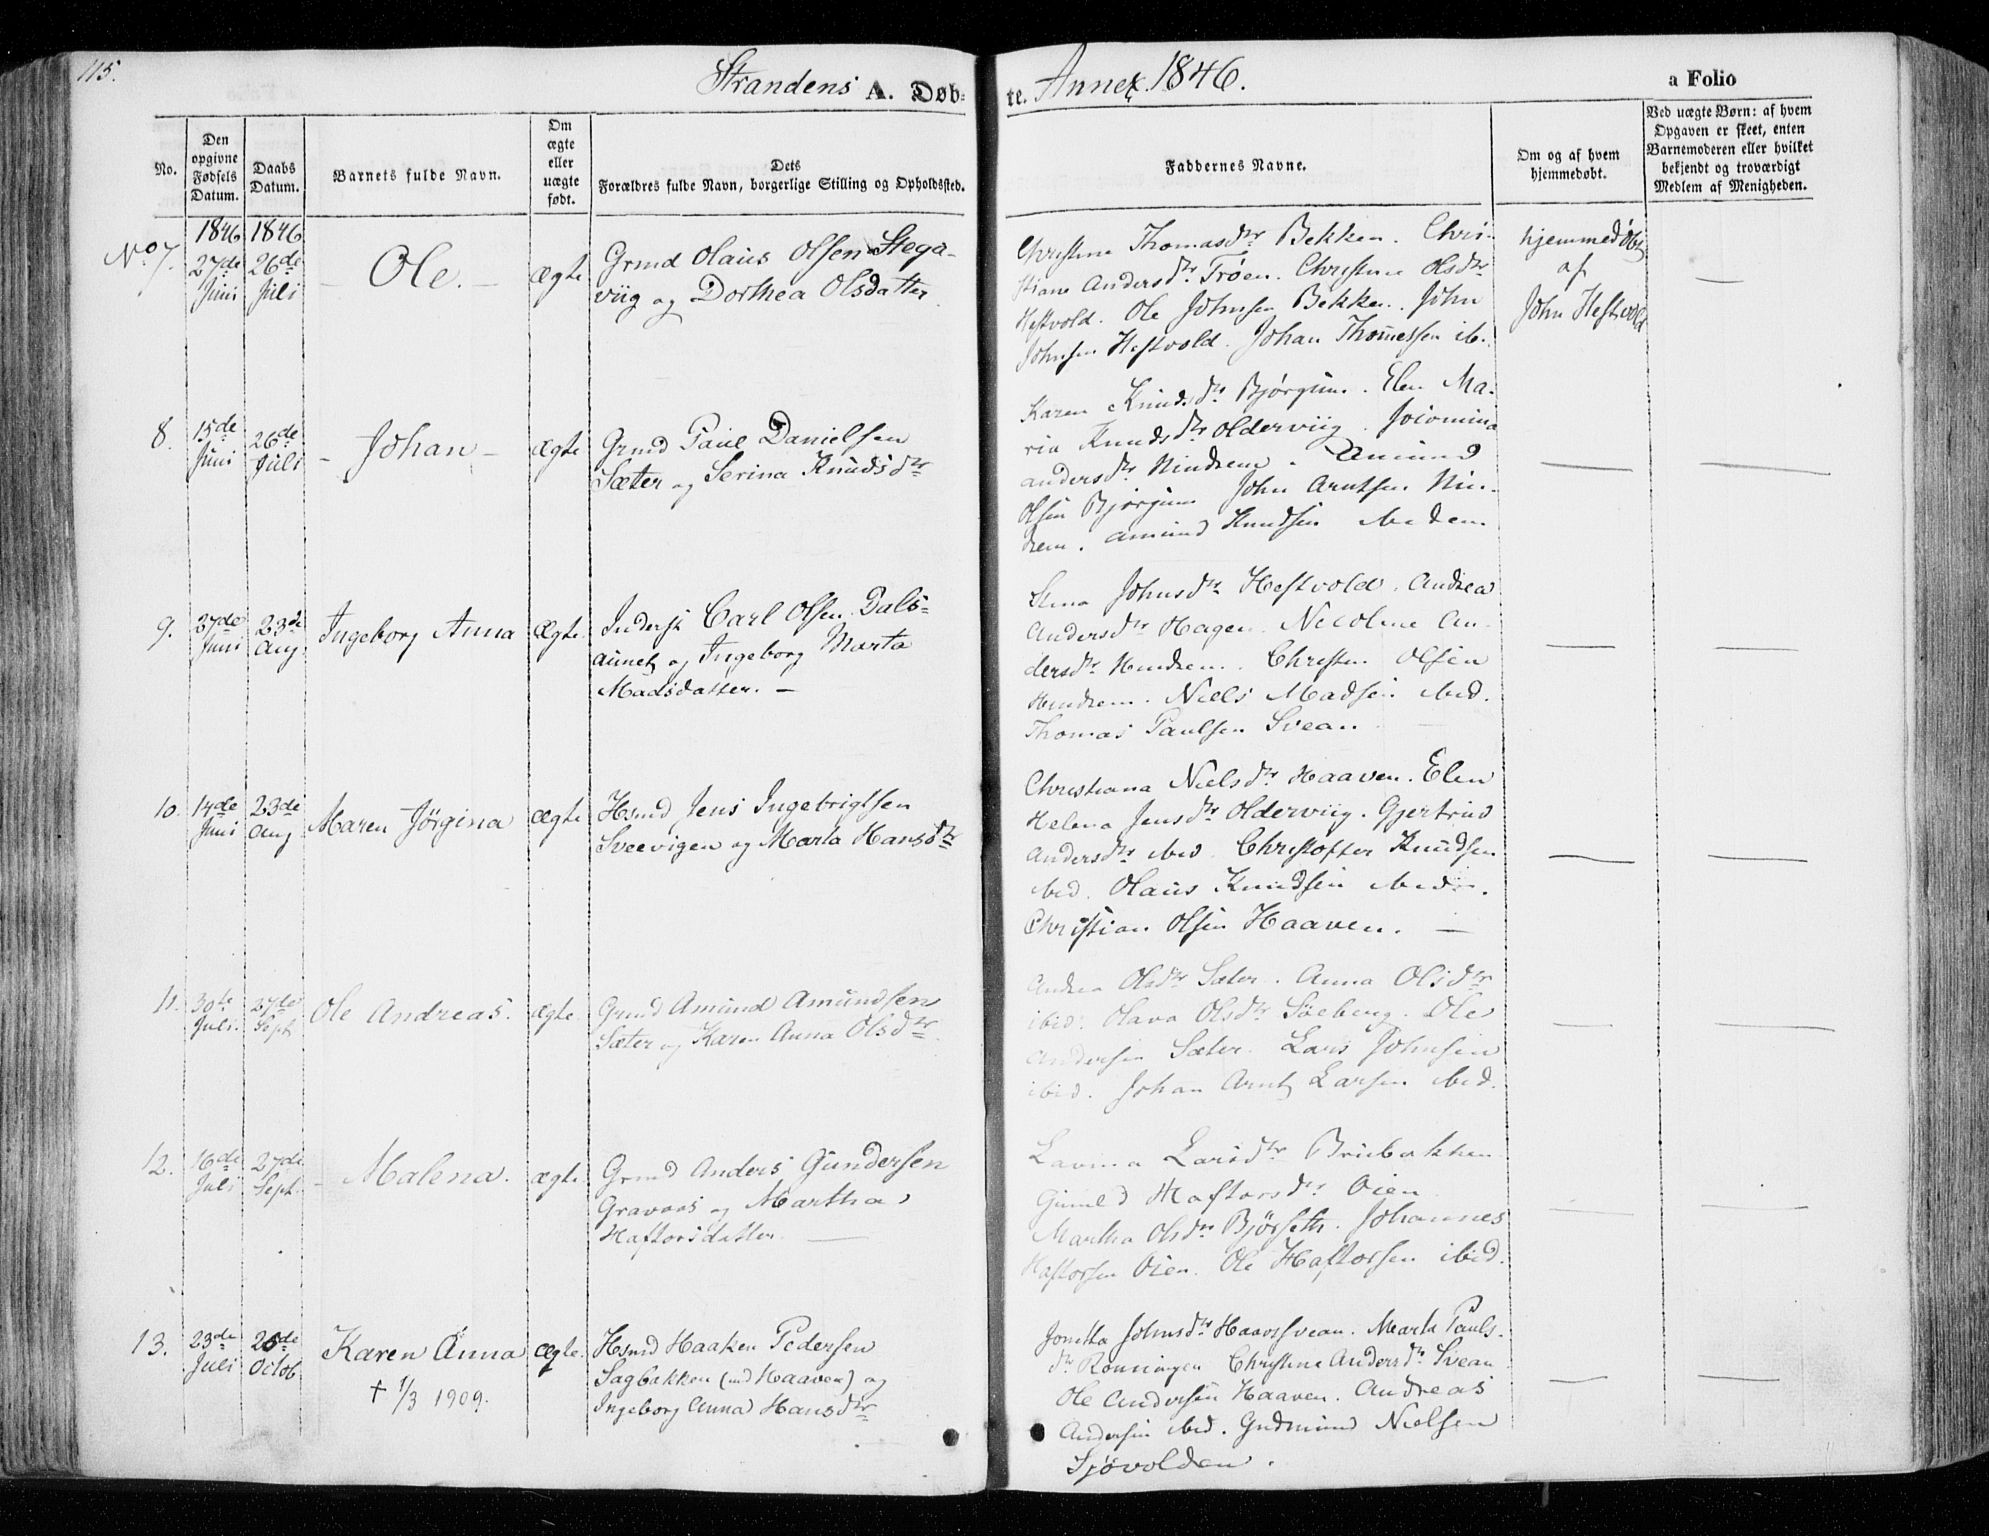 115.
Strandens A. Døb-
te. Annex 1846.
a Folio
No.
Den opgivne Fødsels Datum.
Daabs Datum.
Barnets fulde Navn.
Om ægte eller uægte født.
Dets Forældres fulde Navn, borgerlige Stilling og Opholdssted.
Faddernes Navne.
Om og af hvem hjemmedøbt.
Ved uægte Børn: af hvem Opgaven er skeet, enten Barnemoderen eller hvilket bekjendt og troværdigt Medlem af Menigheden.
No 7.
1846
27de
Juni
1846
26de
Juli
Ole.
ægte
Grmd Olaus Olsen Stega-
viig og Dorthea Olsdatter
Christine Thomasdtr Bekken. Chri-
stiane Andersdtr Trøen. Christine Olsdtr
Hestvold. Ole Johnsen Bekken. John
Johnsen Hestvold. Johan Thomessen ib.
hjemmedøbt
af
John Hestvold
8.
15de
Juni
26de
Juli
Johan
ægte
Grmd Paul Danielsen
Sæter og Serina Knudsdtr
Karen Knudsdtr Bjørgum. Elen Ma-
ria Knudsdtr Olderviig. Jocomina
Andersdtr Hindrem. Amund
Olsen Bjørgum John Arntsen Hin-
drem. Amund Knudsen ibidem
9.
27de
Juni
23de
Aug
Ingeborg Anna
ægte
Inderst Carl Olsen Dals-
aunet og Ingeborg Marta
Madsdatter.
Johnsdtr Hestvold. Andrea
Andersdtr Hagen. Nicoline An-
dersdtr Hindrem. Christen Olsen
Hindrem. Niels Madsen ibid.
Thomas Paulsen Svean
10.
14de
Juni
23de
Aug
Maren Jørgina
ægte
Hsmd Jens Ingebrigtsen
Sveevigen og Marta Hansdtr
Christiana Nielsdtr Haaven. Elen
Helena Jensdtr Olderviig. Gjertrud
Andersdtr ibid. Christoffer Knudsen
ibid. Olaus Knudsen ibid.
Christian Olsen Haaven.
11.
30te
Juli.
27de
Sept
Ole Andreas.
ægte
Grmd Amund Amundsen
Sæter og Karen Anna Olsdtr
Andrea Olsdtr Sæter. Anna Olsdtr
ibid. Olava Olsdtr Søeberg. Ole
Andersen Sæter. Lars Johnsen
ibid. Johan Arnt Larsen ibid.
12.
16de
Juli
27de
Sept.
Malena.
ægte
Grmd Anders Gundersen
Gravaas og Martha
Haftorsdatter
Larsdtr
Haftorsdtr Oien
Martha Olsdtr Bjørseth. Johannes
Haftorsen Oien. Ole Haftorsen ibid.
13.
23de
Juli
26de
Octob
Karen Anna
† 1/3 1909.
ægte.
Hsmd Haaken Pedersen
Sagbakken (und Haaven) og
Ingeborg Anna Hansdtr
Jonetta Johnsdtr Haarssvean. Marta Pauls-
dtr Rønningen Christine Andersdtr Svean
Ole Andersen Haaven. Andreas
Andersen ibid. Gudmund Nielsen
Sjøvolden.